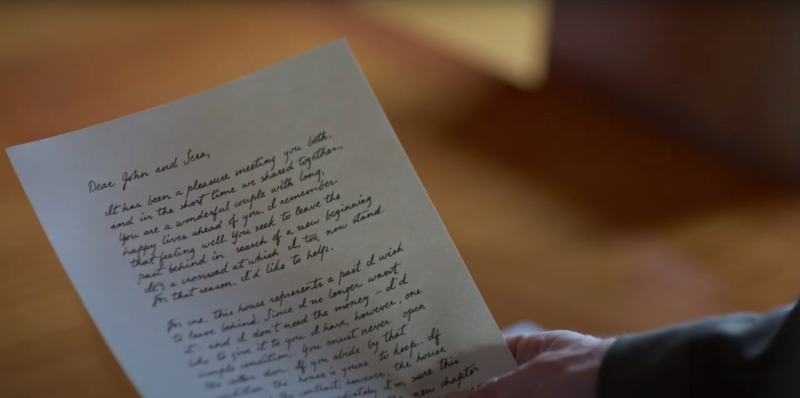 Dear John and Sera,
It has been a pleasure meeting you both,
and in the short time we shared together,
You are a wonderful couple with long,
happy lives ahead of you. I remember
that feeling well. You seek to leave the
past behind in search of a new beginning
It's a crossroad at which I, too, now stand.
For that reason, I'd like to help.
For me, this house represents a past I wish
to leave behind. Since I no longer want
it - and I don't need the money - I'd
like to give it to you. I have, however, one
simple condition. You must never open
the cellar door. If you abide by that
condition, the house is yours to keep. If
the contract, however, the house
I'm sure this
new chapter